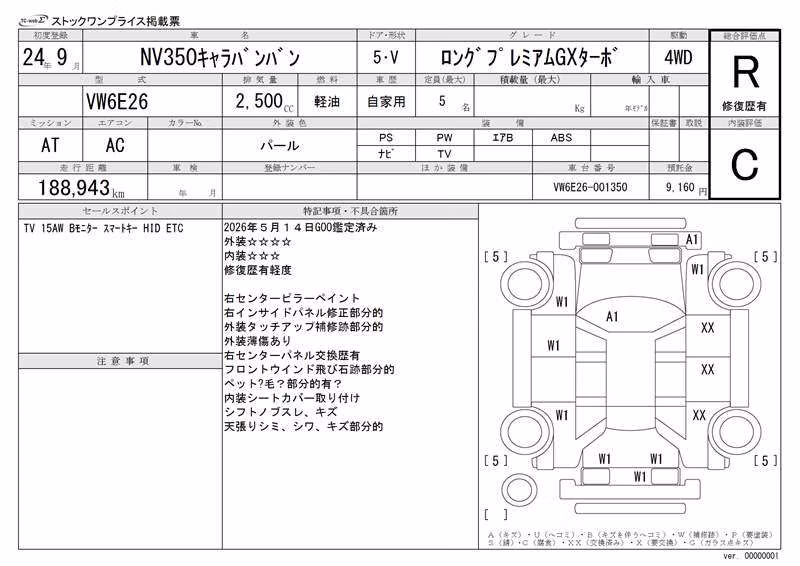 TC-webΣ ストックワンプライス掲載票
初度登録 車名 ドア・形状 グレード 駆動 総合評価点
24年 9月 NV350キャラバンバン 5・V ロングプレミアムGXターボ 4WD R
修復歴有
型式 排気量 燃料 車歴 定員(最大) 積載量(最大) 輸入車
VW6E26 2,500CC 軽油 自家用 5名 Kg 年モデル
ミッション エアコン カラーNo. 外装色 装備 保証書 取説 内装評価
AT AC パール PS PW エアB ABS C
ナビ TV
走行距離 車検 登録ナンバー ほか装備 車台番号 預託金
188,943km 年 月 VW6E26-001350 9,160円
セールスポイント
TV 15AW Bモニター スマートキー HID ETC
注意事項
特記事項・不具合箇所
2026年5月14日GOO鑑定済み
外装☆☆☆☆
内装☆☆☆
修復歴有軽度
右センターピラーペイント
右インサイドパネル修正部分的
外装タッチアップ補修跡部分的
外装薄傷あり
右センターパネル交換歴有
フロントウインド飛び石跡部分的
ペット?毛?部分的有?
内装シートカバー取り付け
シフトノブスレ、キズ
天張りシミ、シワ、キズ部分的
A1
[5] W1 [5]
W1
A1 XX
W1
XX
W1 XX
[5] W1 W1 [5]
W1
[ ]
A(キズ)・U(ヘコミ)・B(キズを伴うヘコミ)・W(補修跡)・P(要塗装)
S(錆)・C(腐食)・XX(交換済み)・X(要交換)・G(ガラス点キズ)
ver. 00000001